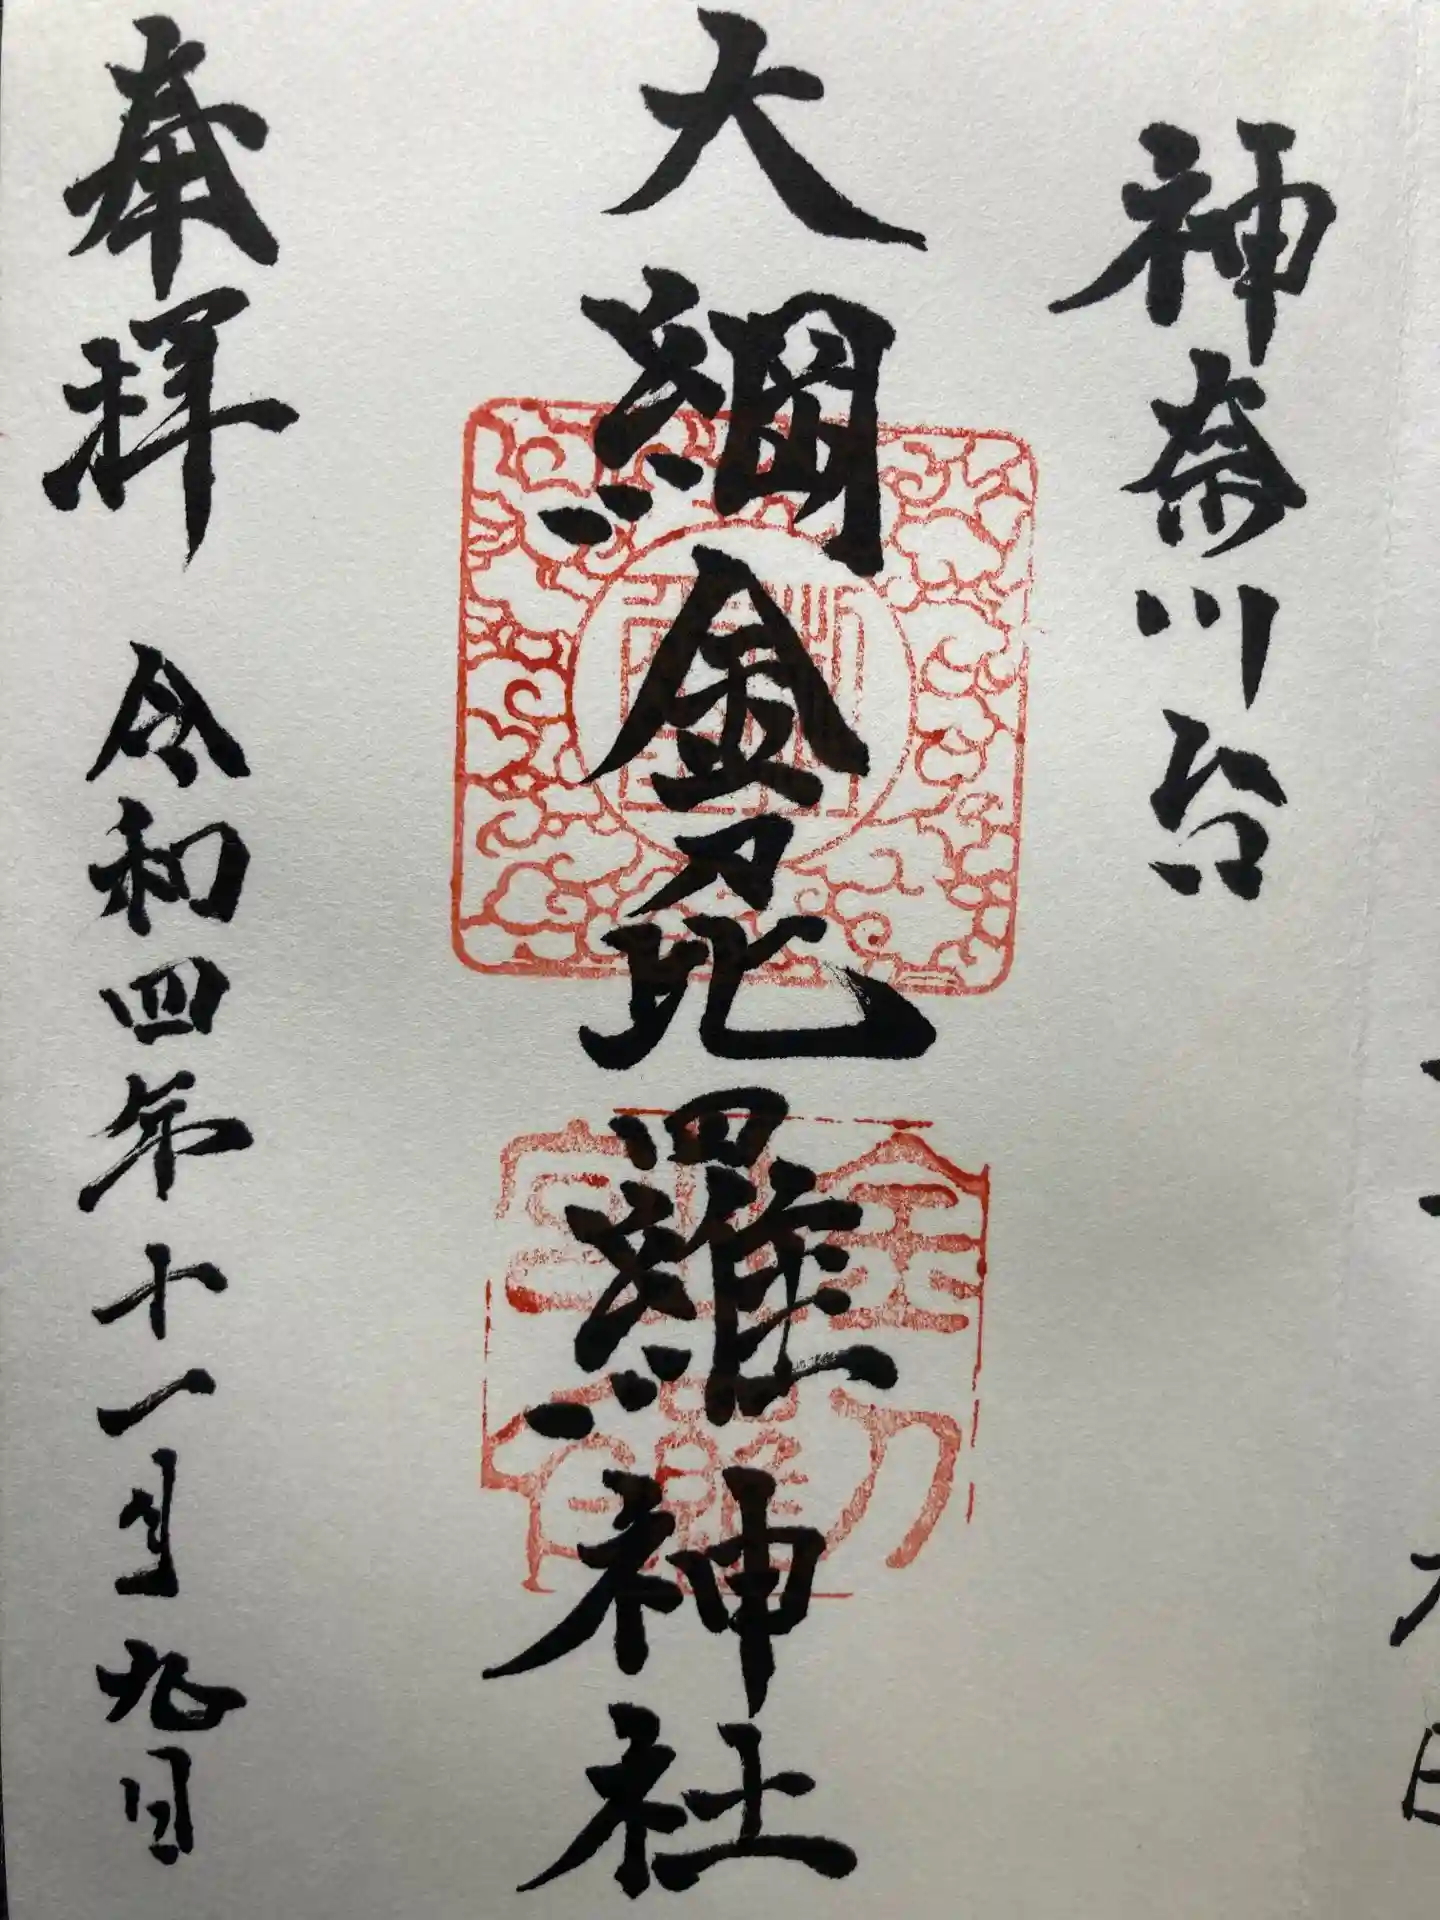 神奈川台
大綱金刀比羅神社
奉拝 令和四年十一月九日